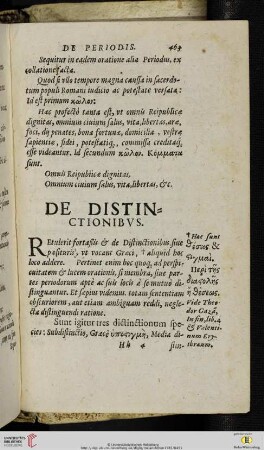 DE PERIODIS. 463
Sequitur in eadem oratione alia Periodus, ex
collatione facta.
Quod si vllo tempore magna caussa in sacerdo-
tum populi Romani iudicio ac potestate versata:
Id est primum κῶλον:
Hac profectò tanta est, vt omnis Reipublicæ
dignitas, omnium ciuium salus, vita, libertas, aræ,
foci, dij penates, bona fortunæ, domicilia, vestræ
sapientiæ, fidei, potestatiq́, commissa creditaq́,
esse videantur. Id secundum κῶλον. Κόμματα
sunt.
Omnis Reipublicæ dignitas.
Omnium ciuium salus, vita, libertas, &c.
DE DISTIN-
CTIONIBVS.
REtulerit fortassis & de Distinctionibus siue
posituris, vt vocant Græci, † aliquid hoc
loco addere. Pertinet enim hoc quoq́, ad perspi-
cuitatem & lucem orationis, si membra, siue par-
tes periodorum aptè ac suis locis à se mutuò di-
stinguantur. Et sæpius videmus totam sententiam
obscuriorem, aut etiam ambiguam reddi, negle-
cta distinguendi ratione.
Sunt igitur tres distinctionum spe-
cies: Subdistinctio, Græcè ὑποστιγμὴ, Media di-
Hh 4 stin-
† Hac sunt
θέσεις &
στιγμαί.
Περὶ τῆς
διαστολῆς
ἢ θέσεως.
Vide Theo-
dor Gazã.
In fin. lib. 4
& Valenti-
num Ery-
thræum.